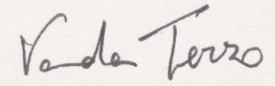 Vanda Terzo